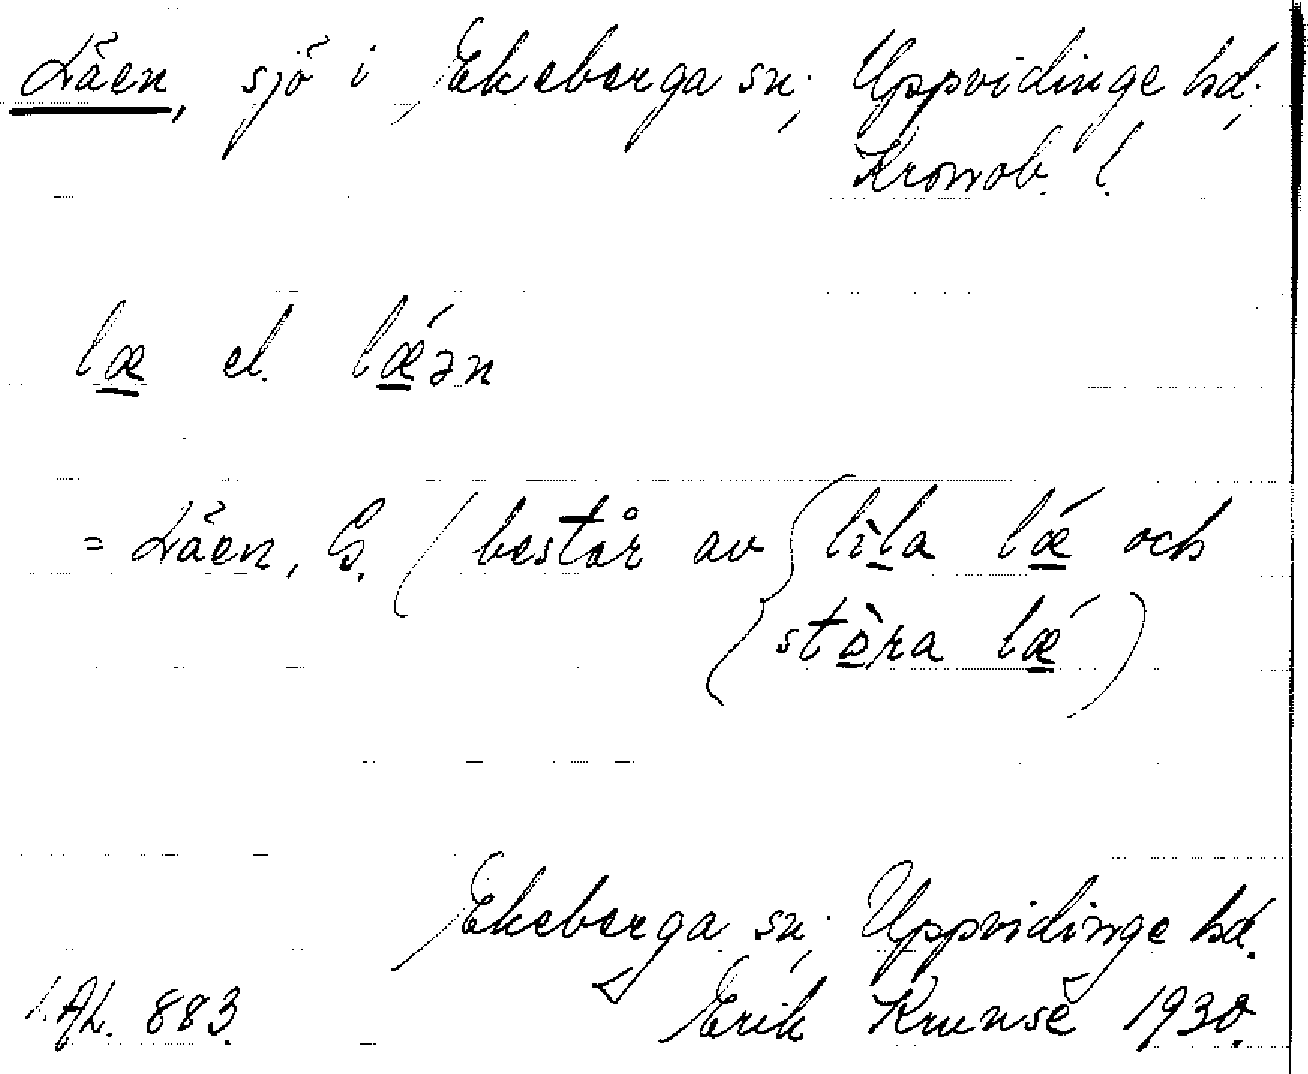 Läen, sjö i Ekeberga sn; Uppvidinge hd;
Kronob. l.
læ el. lǽən
= Läen, G. (består av { lìla lǽ och
stòra lǽ )
Ekeberga sn; Uppvidinge hd.
Afl. 883. Erik Krunse 1930.